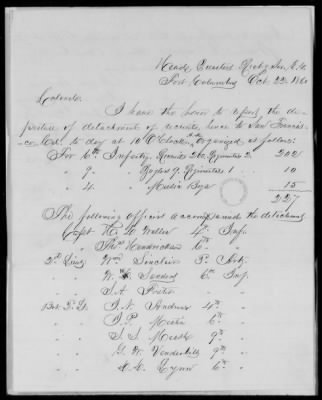 Head Quarters Rectg Ser, N.Y.
Fort Columbus Oct. 22 1860
Colonel:
I have the honor to report the de-
parture of detachment of recruits, hence to San Francis-
co, Cal. to day at 10 O'Clock A.M. organized as follows.
For 6th Infantry, Recruits 200. Regimentals 2. 202
" 9 " Boys 9. Regimentals 1. 10
" 4 " Music Boys 15
227
The following officers accompanied the detachment
Capt H. D. Wallen 4th Inf.
" Thos Hendrickson 6th "
1st Lieut Wm Sinclair 3d Arty.
" W. P. Sanders 6th Inf.
" J. A.
Bvt 2d Lt. J. N. Andrews 4th "
" J. P. 6th "
" S. S. 9th "
" G. W. Vanderbilt 9th "
" 6th "